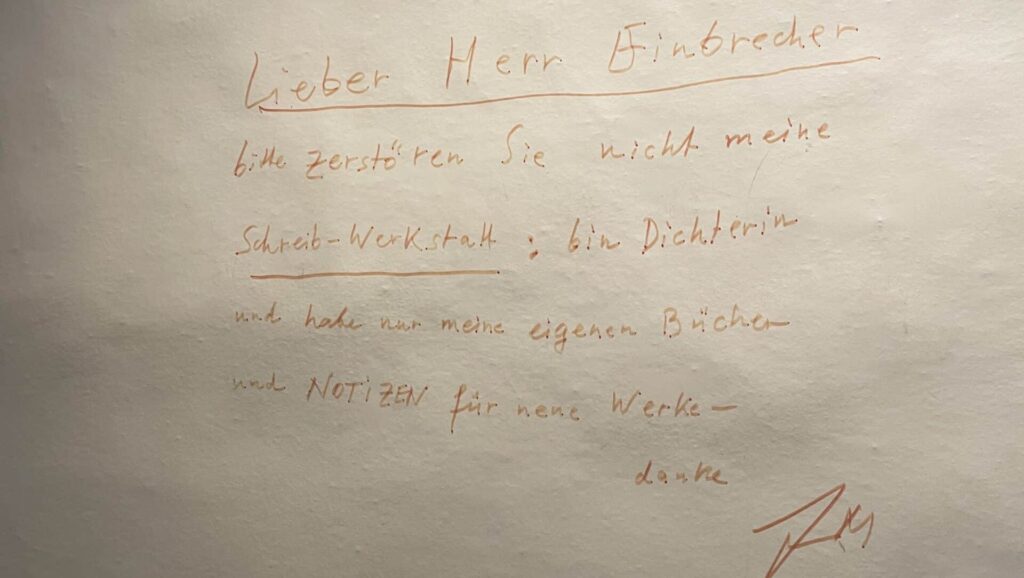 Lieber Herr Einbrecher
bitte zerstören Sie nicht meine
Schreib-Werkstatt : bin Dichterin
und habe nur meine eigenen Bücher
und NOTIZEN für neue Werke –
danke